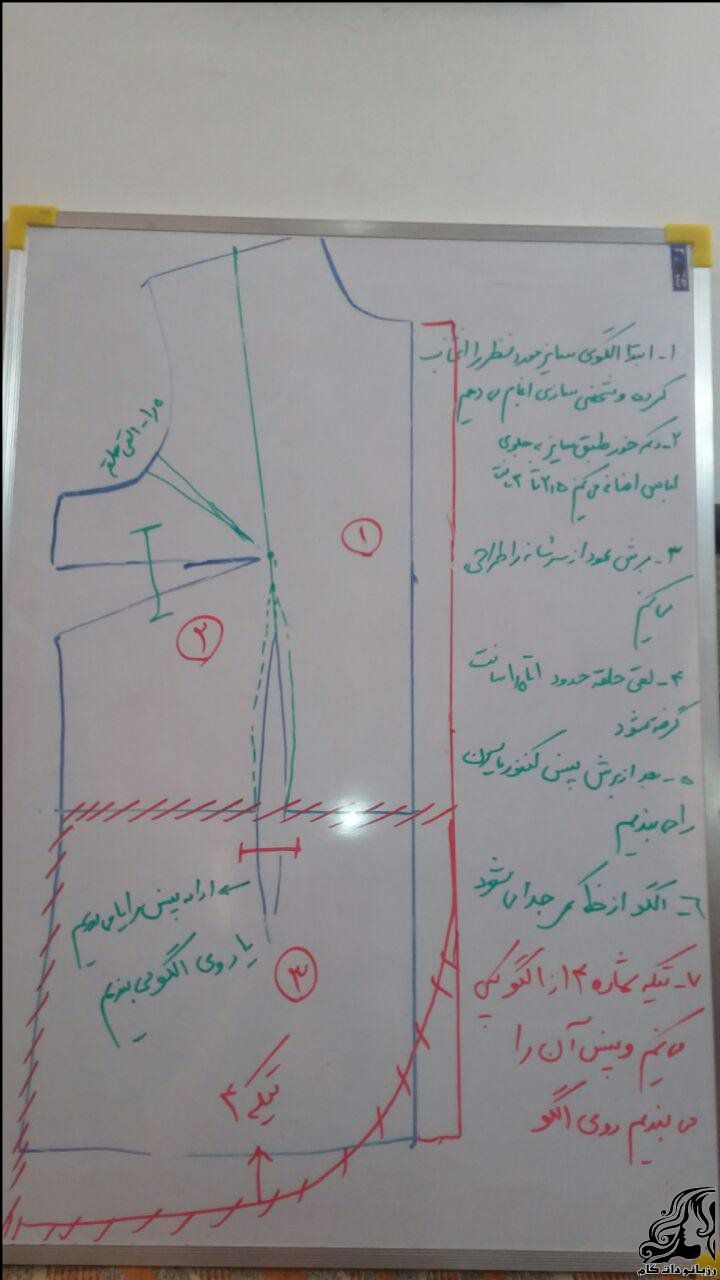 ۱- ابتدا الگوی سایز مورد نظر را انتخاب
کرده و شخصی سازی انجام می دهیم
۲- دکمه خور طبق سایز به جلوی
لباس اضافه می کنیم ۲٫۵ تا ۳ سانت
۳- برش عمود از سرشانه را طراحی
می کنیم
۴- لقی حلقه حدود ۱ تا ۱٫۵ سانت
گرفته میشود
۵- بعد از برش پنس
را می بندیم
۶- الگو از خط کمر جدا می شود
۷- تیکه شماره ۳ از الگو کپی
می کنیم و پنس آن را
می بندیم روی الگو
۱٫۵- لقی حلقه
۱
۲
ادامه پنس را یا می بریم
یا روی الگو می بندیم
۳
تیکه ۴
رزبانو دات کام